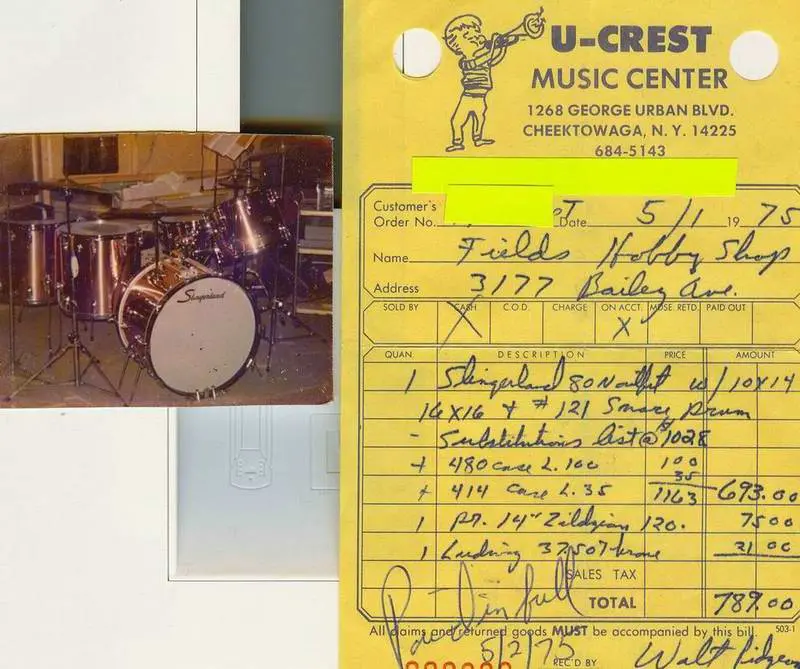 Slingerland
U-CREST
MUSIC CENTER
1268 GEORGE URBAN BLVD.
CHEEKTOWAGA, N. Y. 14225
684-5143
Customer's
Order No. Date 5/1 1975
Name Fields Hobby Shop
Address 3177 Bailey Ave.
SOLD BY CASH C.O.D. CHARGE ON ACCT. MDSE. RETD. PAID OUT
X X
QUAN. DESCRIPTION PRICE AMOUNT
1 Slingerland 80N outfit w/ 10X14
16X16 + #121 Snare Drum
- Substitutions list @ $1028
+ 480 case L. 100 100
35
+ 414 case L. 35 1163 693.00
1 Pr. 14" Zildjian 120. 75 00
1 Ludwig 21 00
SALES TAX
TOTAL 789.00
Paid in full
All claims and returned goods MUST be accompanied by this bill. 503-1
5/2/75 REC'D BY Walt